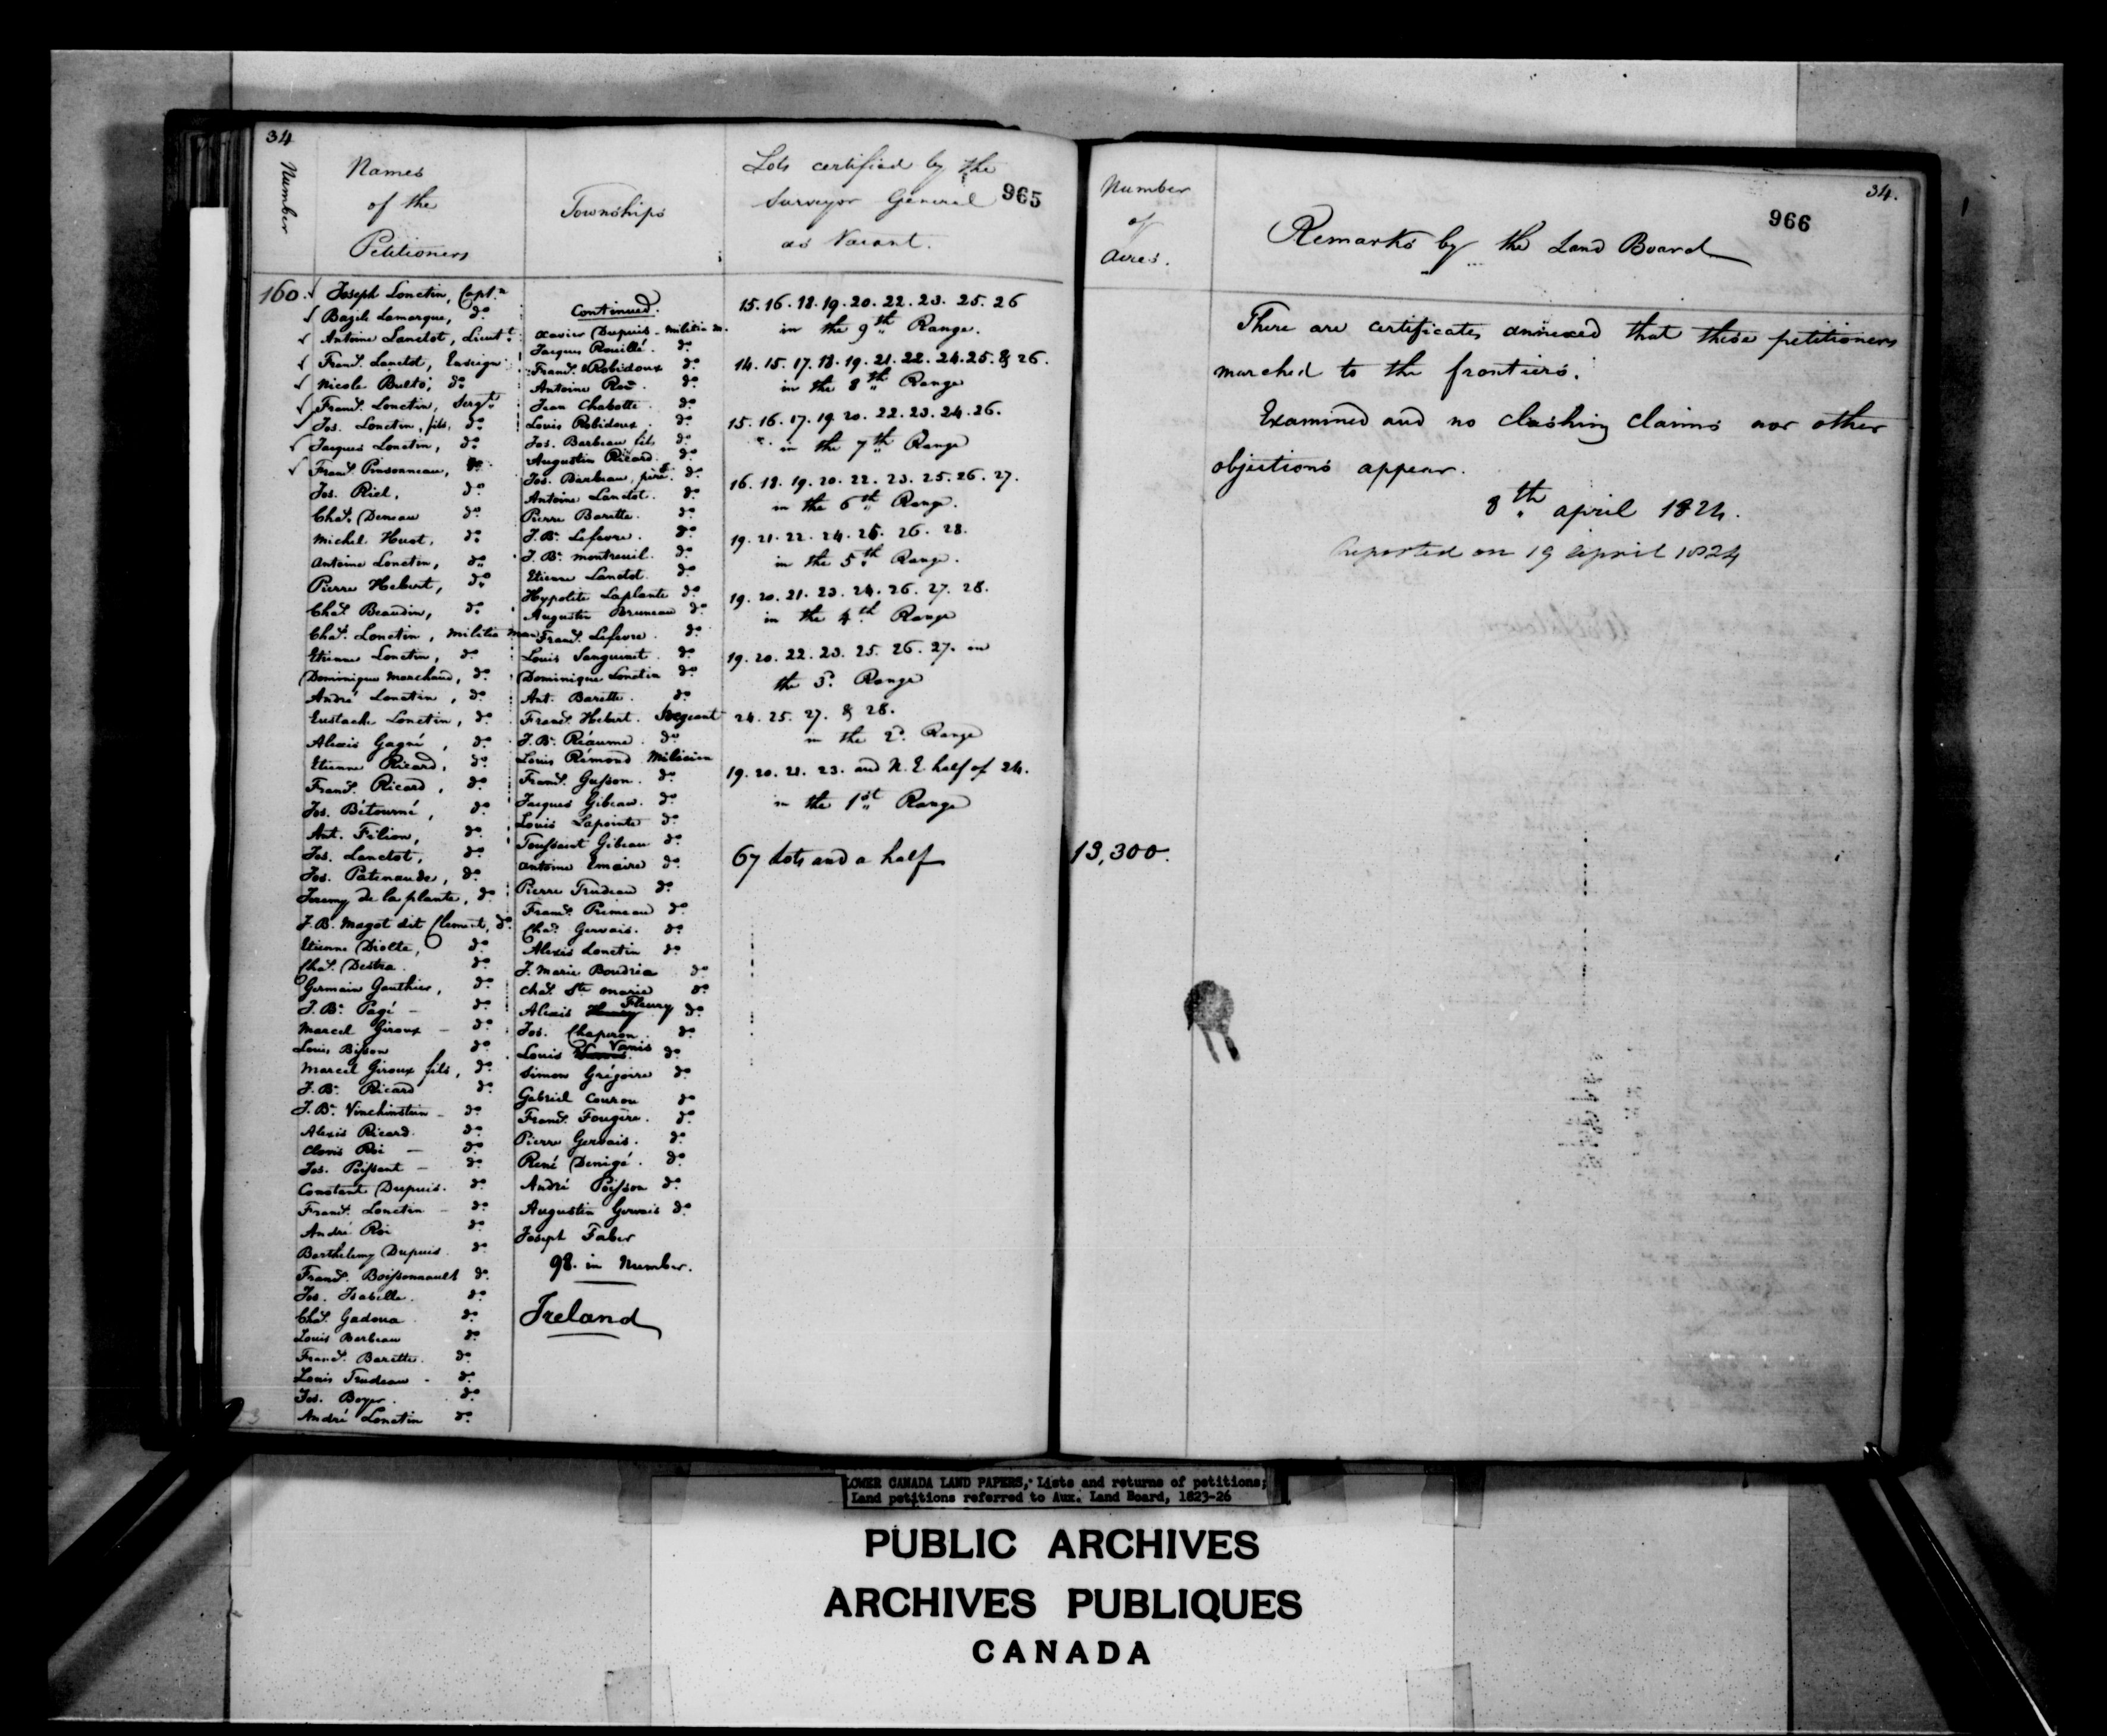 34
Number
Names
of the
Petitioners
Townships
Lots certified by the
Surveyor General
as Vacant.
965
160. Joseph Lonctin, Capt.n
Bazile Lamarque, do
Antoine Lanctot, Lieut.t
Franç. Lanctot, Ensign
Nicole Bulto, do
Franç. Lonctin, Sergt.
Jos. Lonctin, fils, do
Jacques Lonctin, do
Franç. Pinsonneau, do
Jos. Riel, do
Chas. Deneau do
Michel Huot, do
Antoine Lonctin, do
Pierre Hebert, do
Chas. Beaudin, do
Chas. Lonctin, Militia man
Etienne Lonctin, do
Dominique Marchand, do
André Lonctin, do
Eustache Lonctin, do
Alexis Gagné, do
Etienne Ricard, do
Franç. Ricard, do
Jos. Bétourné, do
Ant. Filion, do
Jos. Lanctot, do
Jos. Patenaude, do
Jeremy de la plante, do
J. B. Magot dit Clement, do
Etienne Diolte, do
Chas. Destra. do
Germain Gauthier, do
J. Bte. Pagé - do
Marcel Giroux - do
Louis Bisson do
Marcel Giroux fils, do
J. Bte. Ricard do
J. Bte. Vinchinstein - do
Alexis Ricard. do
Clovis Roi - do
Jos. Poissant - do
Constant Dupuis. do
Franç. Lonctin - do
André Roi do
Barthelemy Dupuis. do
Franç. Boissonnault do
Jos. Isabelle. do
Chas. Gadoua do
Louis Barbeau do
Franç. Barette. do
Louis Trudeau - do
Jos. Boyer. do
André Lonctin do
Continued.
Xavier Dupuis - Militia m.
Jacques Rouillé. do
Franç. Robidoux do
Antoine Roi. do
Jean Chabotte. do
Louis Robidoux. do
Jos. Barbeau fils do
Augustin Ricard. do
Jos. Barbeau, père. do
Antoine Lanctot. do
Pierre Barette. do
J. Bte. Lefevre. do
J. Bte. Montreuil. do
Etienne Lanctot. do
Hypolite Laplante do
Augustin Bruneau do
Franç. Lefevre. do
Louis Sanguinet. do
Dominique Lonctin do
Ant. Barette. do
Franç. Hebert. Sergeant
J. Bte. Réaume. do
Louis Rémond Milicien
Franç. Gusson. do
Jacques Gibeau. do
Louis Lapointe do
Toussaint Gibeau do
Antoine Emaire do
Pierre Trudeau do
Franç. Primeau do
Chas. Gervais. do
Alexis Lonctin do
J. Marie Boudria do
Chas. Ste Marie do
Alexis Fleury do
Jos. Chaperon. do
Louis Vanis do
Simon Grégoire do
Gabriel Courou do
Franç. Fougère. do
Pierre Gervais. do
René Denigé. do
André Poisson do
Augustin Gervais do
Joseph Faber
98. in Number.
Ireland
15. 16. 18. 19. 20. 22. 23. 25. 26
in the 9th Range.
14. 15. 17. 18. 19. 21. 22. 24. 25. & 26.
in the 8th Range
15. 16. 17. 19. 20. 22. 23. 24. 26.
in the 7th Range
16. 18. 19. 20. 22. 23. 25. 26. 27.
in the 6th Range.
19. 21. 22. 24. 25. 26. 28.
in the 5th Range.
19. 20. 21. 23. 24. 26. 27. 28.
in the 4th Range
19. 20. 22. 23. 25. 26. 27. in
the 3. Range
24. 25. 27. & 28.
in the 2d. Range
19. 20. 21. 23. and N. E. half of 24.
in the 1st Range
67 Lots and a half
Number
of
Acres.
13,300.
Remarks by the Land Board
966
34.
There are certificates annexed that these petitioners
marched to the frontiers.
Examined and no clashing claims nor other
objections appear.
8th April 1824.
Reported on 19 April 1824
LOWER CANADA LAND PAPERS, Lists and returns of petitions;
Land petitions referred to Aux. Land Board, 1823-26
PUBLIC ARCHIVES
ARCHIVES PUBLIQUES
CANADA